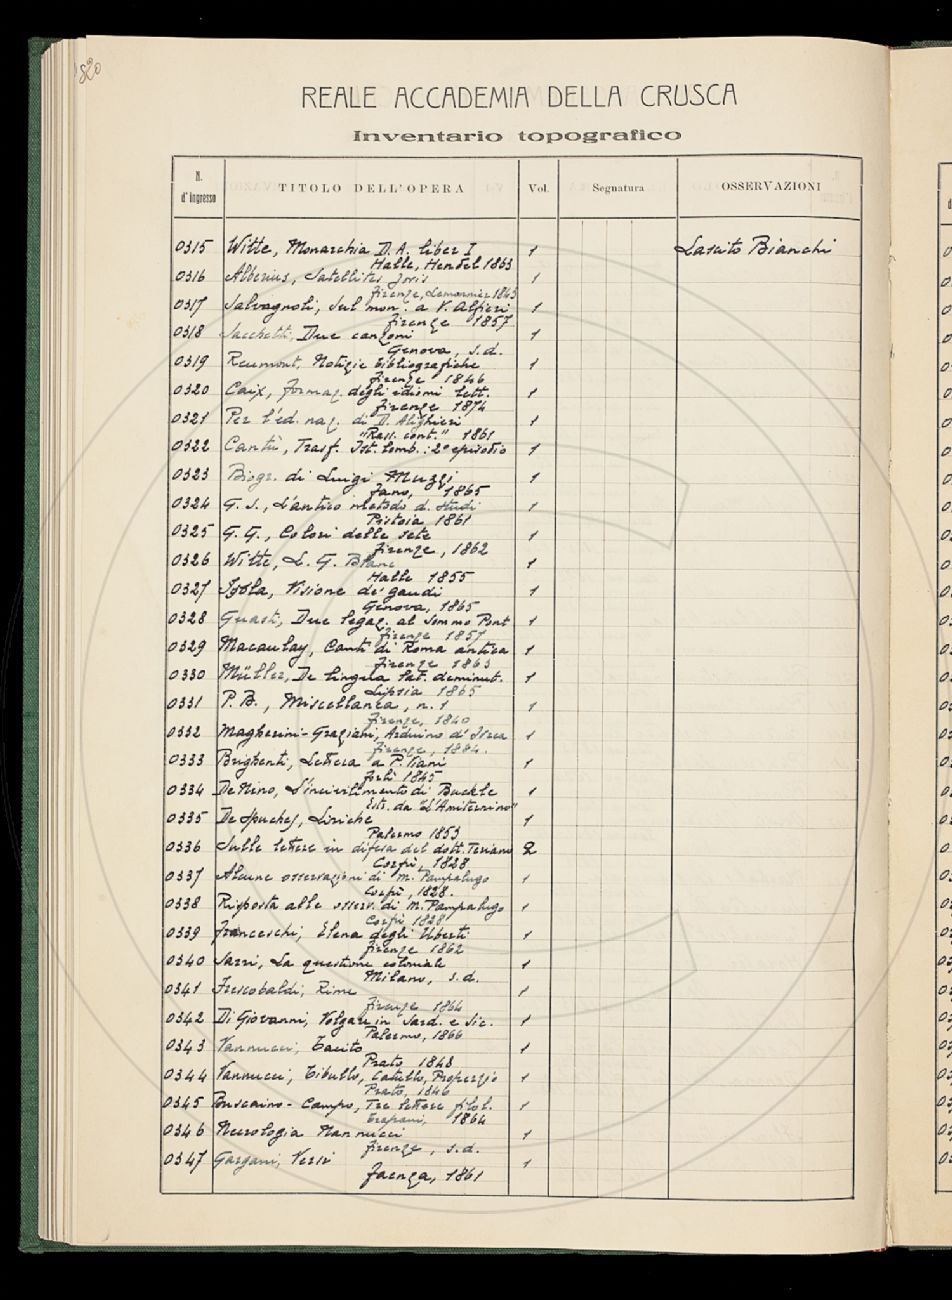 820
REALE ACCADEMIA DELLA CRUSCA
Inventario topografico
N. d'ingresso TITOLO DELL'OPERA Vol. Segnatura OSSERVAZIONI
0315 Witte, Monarchia D. A. liber I 1 Lascito Bianchi
Halle, Hendel 1863
0316 Alberius, Satellites Jovis 1
Firenze, Lemonnier 1843
0317 Salvagnoli, Sul mon. a V. Alfieri 1
Firenze 1857
0318 Sacchetti, Due canzoni 1
Genova, s.d.
0319 Reumont, Notizie bibliografiche 1
Firenze 1846
0320 Caix, Formaz. degli idiomi lett. 1
Firenze 1874
0321 Per l'ed. naz. di D. Alighieri 1
"Rass. cont." 1861
0322 Cantù, Trasf. Ist. Lomb.: 2° episodio 1
0323 Biogr. di Luigi Muzzi 1
Fano, 1865
0324 G. S., L'antico metodo d. studi 1
Pistoia 1861
0325 G. G., Colori delle sete 1
Firenze, 1862
0326 Witte, L. G. Blanc 1
Halle 1855
0327 Isola, Visione de' gaudi 1
Genova, 1865
0328 Guasti, Due legaz. al Sommo Pont 1
Firenze 1857
0329 Macaulay, Canti di Roma antica 1
Firenze 1863
0330 Müller, De lingula lat. deminut. 1
Lipsia 1865
0331 P. B., Miscellanea, n. 1 1
Firenze, 1840
0332 Magherini-Graziani, Arduino d'Ivrea 1
Firenze, 1884.
0333 Brighenti, Lettera a P. Viani 1
Forlì 1845
0334 De Nino, L'incivilimento di Buckle 1
Estr. da "L'Amiternino"
0335 De Spuches, Liriche 1
Palermo 1853
0336 Sulle lettere in difesa del dott. 2
Corfù, 1828
0337 Alcune osservazioni di M. Pampalugo 1
Corfù, 1828.
0338 Risposta alle osserv. di M. Pampalugo 1
Corfù 1828
0339 Franceschi, Elena degli Uberti 1
Firenze 1862
0340 Sarri, La questione coloniale 1
Milano, s.d.
0341 Frescobaldi, Rime 1
Firenze 1866
0342 Di Giovanni, Volgare in Sard. e Sic. 1
Palermo, 1866
0343 Vannucci, Tacito 1
Prato 1848
0344 Vannucci, Tibullo, Catullo, Properzio 1
Prato, 1846
0345 Buscaino-Campo, Tre lettere filol. 1
Trapani, 1864
0346 Necrologia Nannucci 1
Firenze, s.d.
0347 Gargani, Versi 1
Faenza, 1861